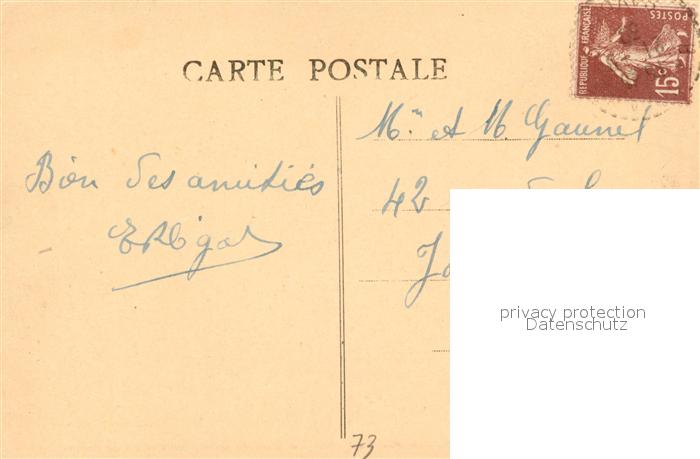 CARTE POSTALE
RÉPUBLIQUE FRANÇAISE
POSTES
15c
Bien des amitiés
Mme et M. Gaunet
42
privacy protection
Datenschutz
73